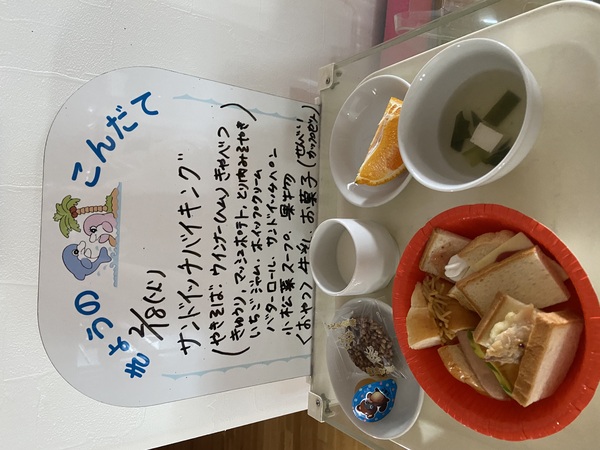 きょうの こんだて
2/18(火)
サンドイッチバイキング
(やきそば、ウインナー(ハム)、きゃべつ
きゅうり、マッシュポテト、とり肉みそやき
いちごジャム、ホイップクリーム
バターロール、サンドイッチパン)
小松菜スープ、果物
<おやつ> 牛乳、お菓子(せんべい
カップゼリー)